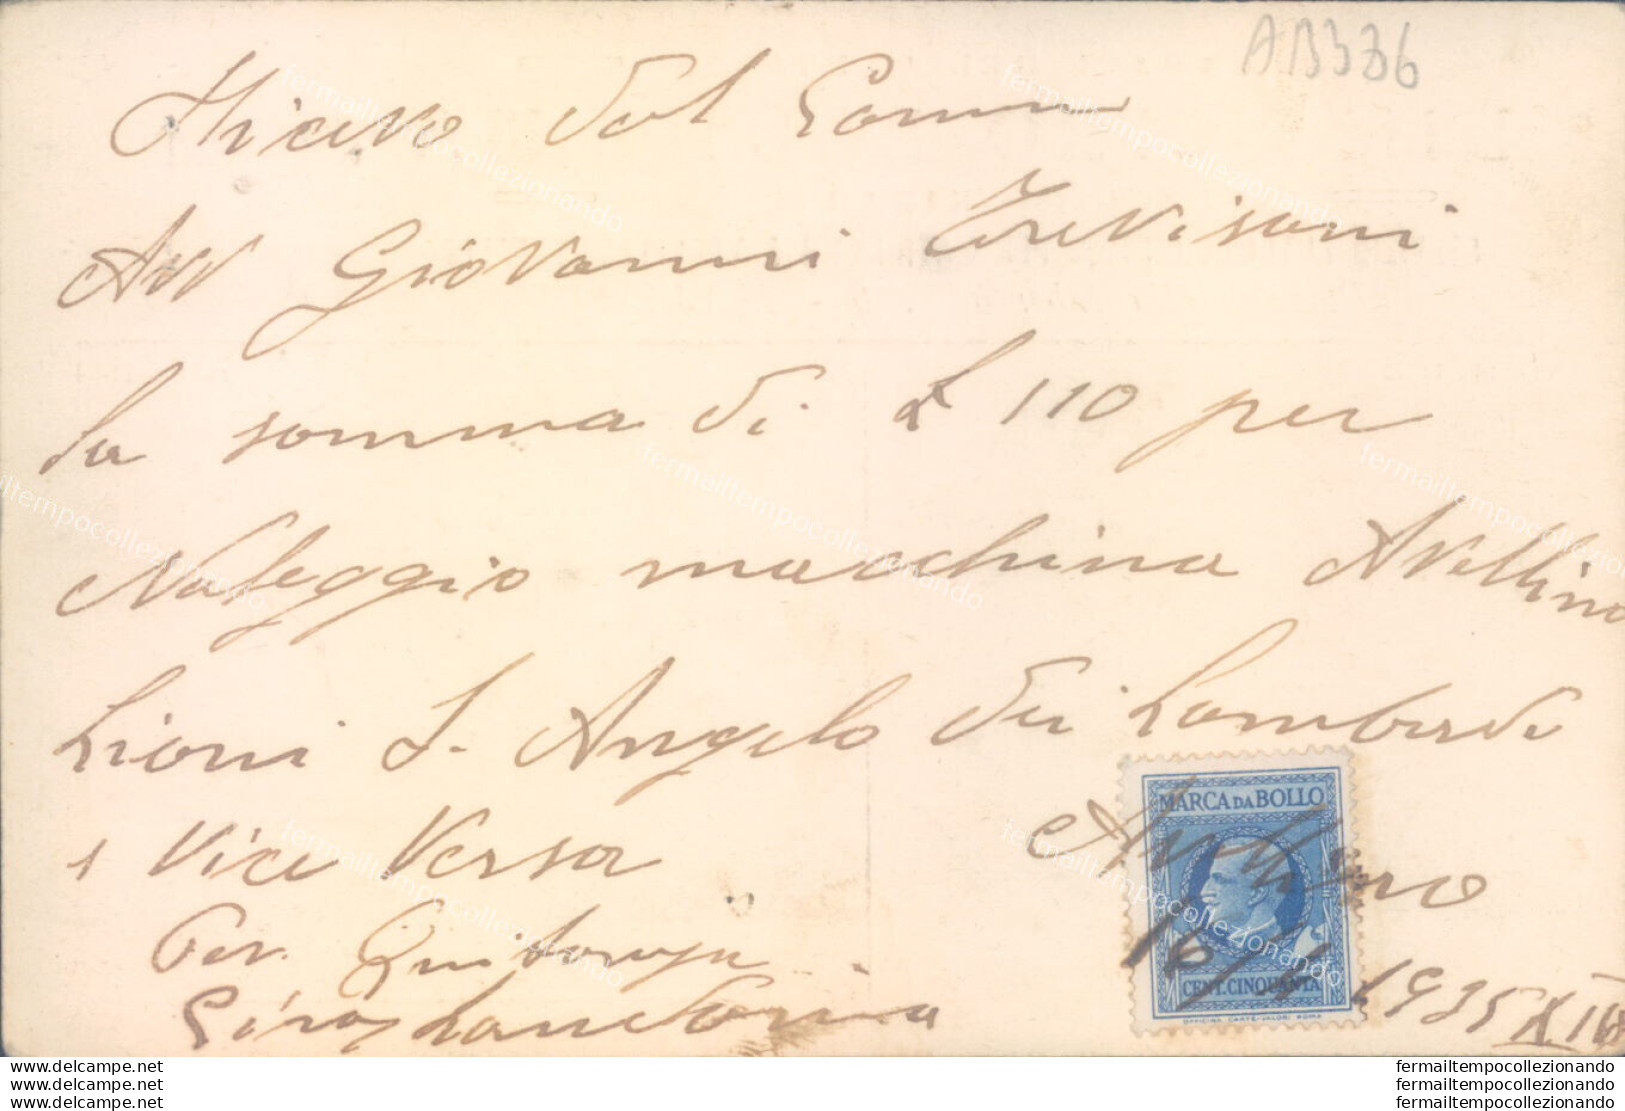 AB336
Ricevo dal Comm
Avv Giovanni Trevisani
la somma di £ 110 per
Noleggio macchina Avellino
Lioni S. Angelo dei Lombardi
e Vice Versa
Avellino
MARCA DA BOLLO
CENT. CINQUANTA
OFFICINA CARTE-VALORI ROMA
1935 XIV
Per
fermailtempocollezionando
www.delcampe.net
www.delcampe.net
www.delcampe.net
fermailtempocollezionando
fermailtempocollezionando
fermailtempocollezionando